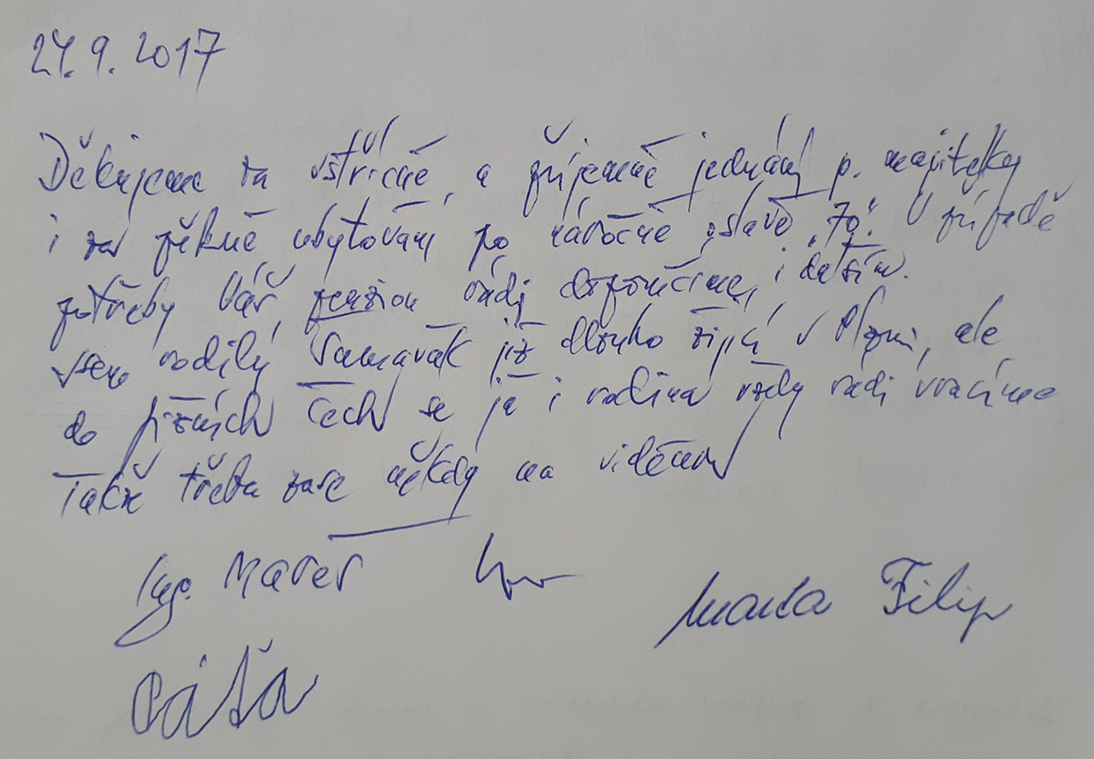 24.9.2017
Děkujeme za vstřícné, a příjemné jednání p. majitelky
i za pěkné ubytování po náročné oslavě "70". V případě
potřeby Váš penzion rádi doporučíme i dalším.
Jsem rodilý Šumavák již dlouho žijící v Plzni, ale
do jižních Čech se já i rodina vždy rádi vracíme
Takže třeba zase někdy na viděnou
Ing. Mareš
Marta Filip
Páťa